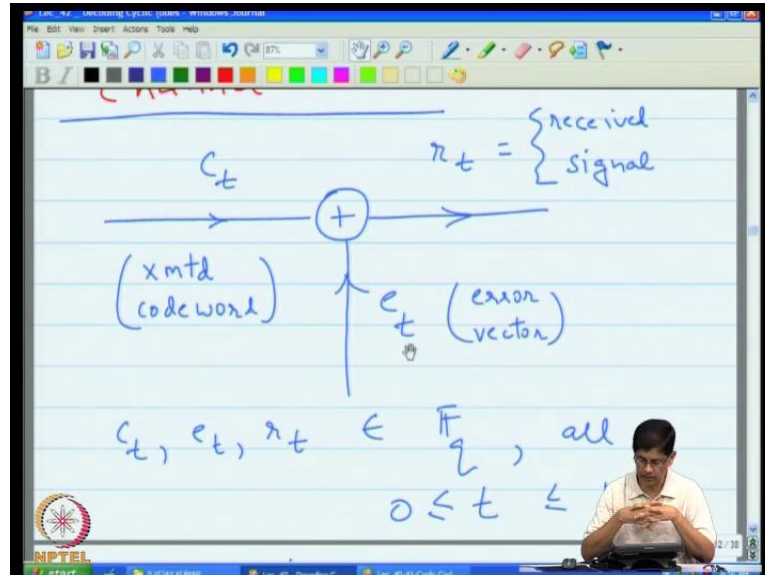 Lec_42 _ Decoding Cyclic Codes - Windows Journal
File Edit View Insert Actions Tools Help
87%
B I
c_t
r_t = { received signal
+
(xmtd codeword)
e_t (error vector)
c_t, e_t, r_t ∈ 𝔽_q, all
0 ≤ t ≤
12/38
NPTEL
start